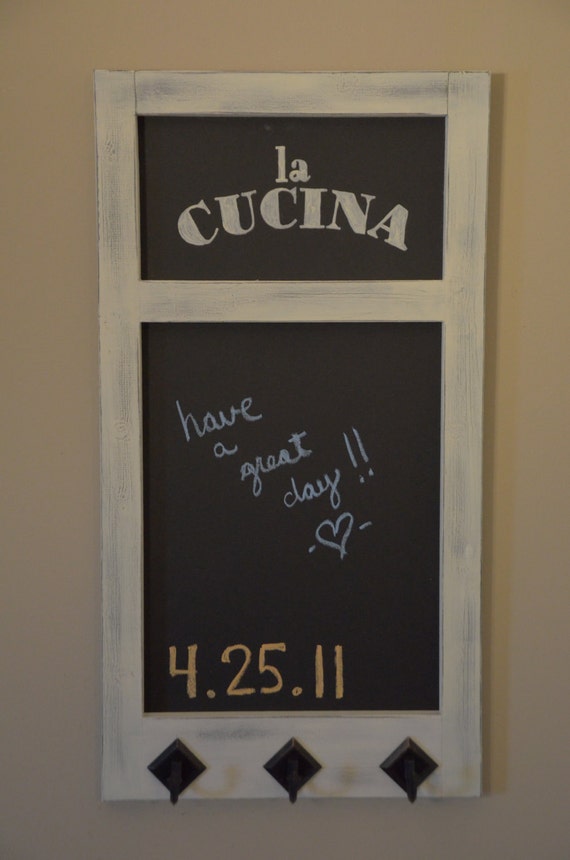 la
CUCINA
have
a
great
day!!
4.25.11